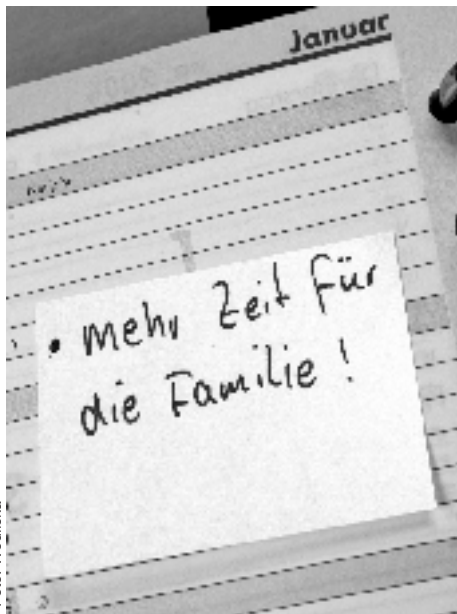 Januar
• mehr Zeit für
die Familie!